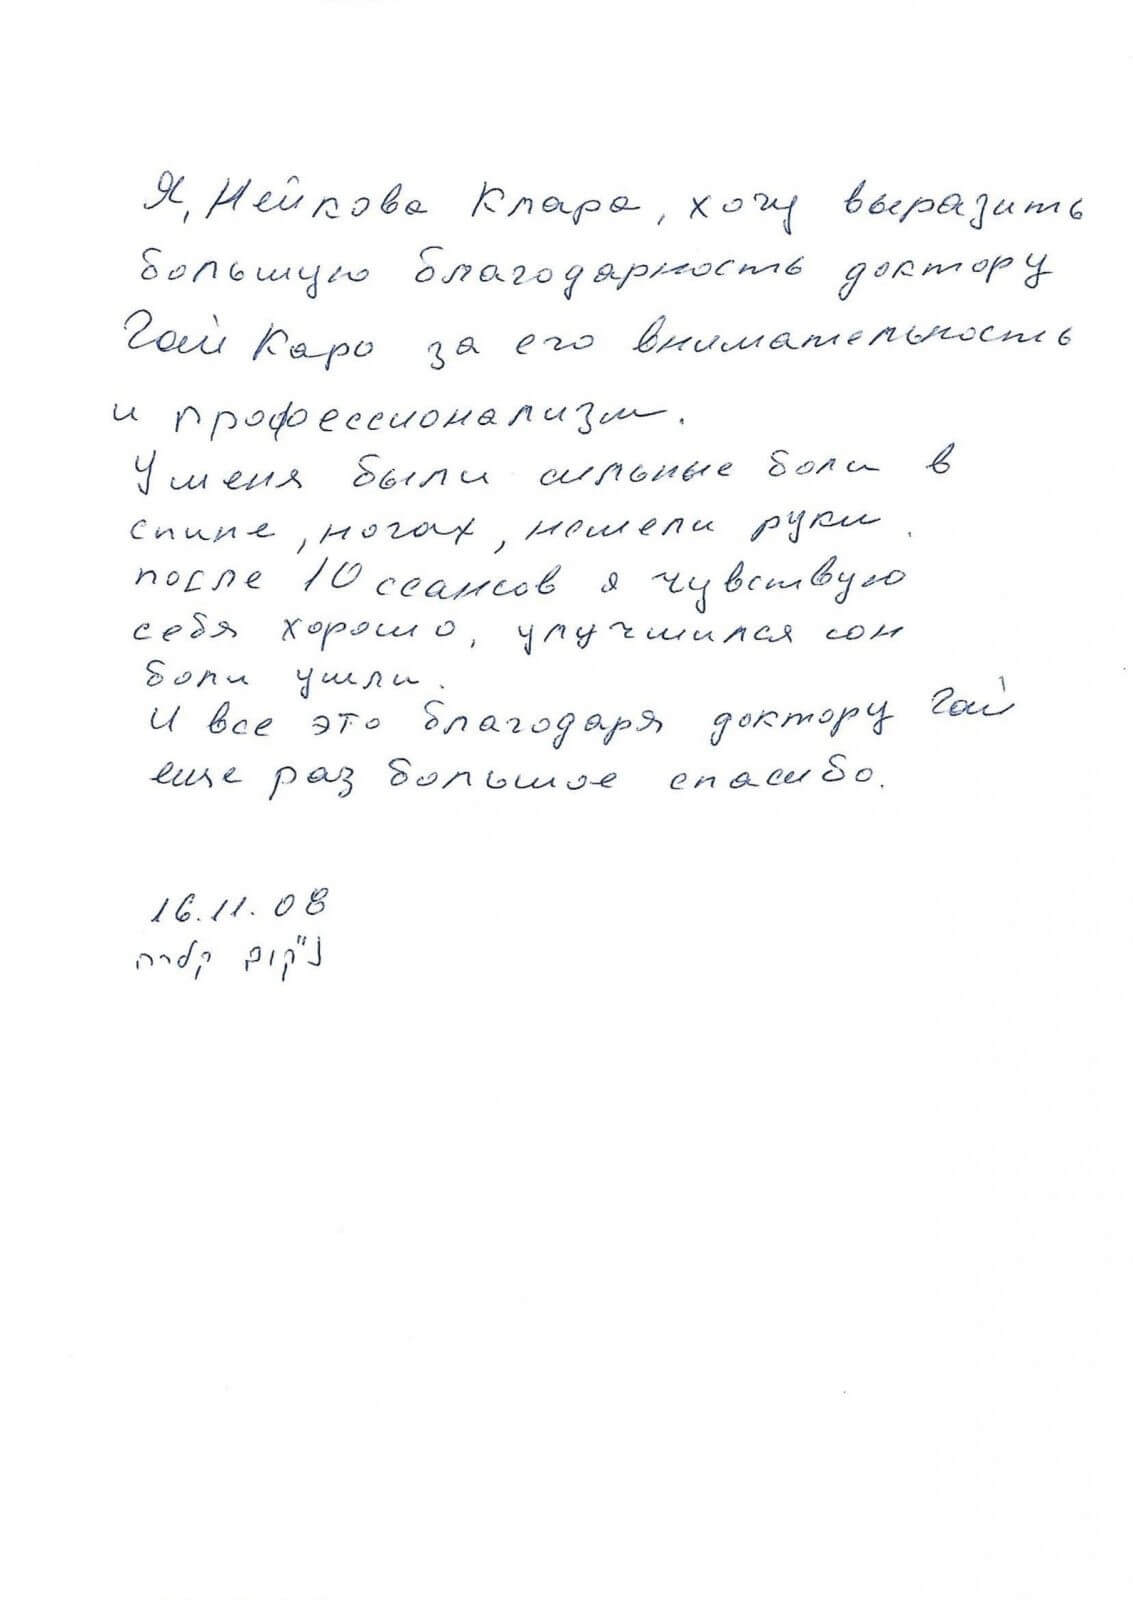 Я, Нейкова Клара, хочу выразить
большую благодарность доктору
Гай Каро за его внимательность
и профессионализм.
У меня были сильные боли в
спине, ногах, немели руки.
после 10 сеансов я чувствую
себя хорошо, улучшился сон
боли ушли.
И все это благодаря доктору Гай
еще раз большое спасибо.
16.11.08
קלרה